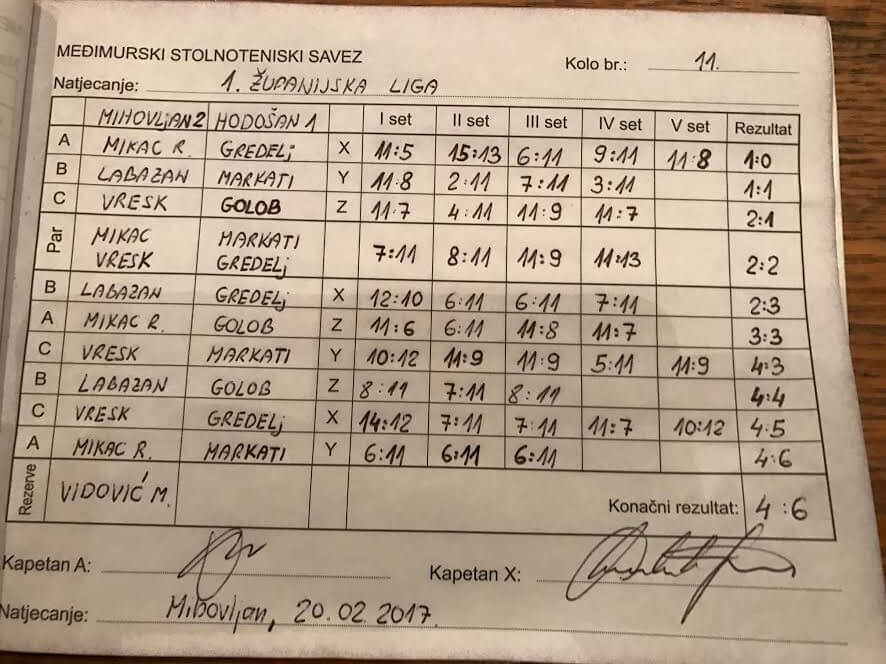 MEĐIMURSKI STOLNOTENISKI SAVEZ Kolo br.: 11.
Natjecanje: 1. ŽUPANIJSKA LIGA
MIHOVLJAN 2 HODOŠAN 1 I set II set III set IV set V set Rezultat
A MIKAC R. GREDELJ X 11:5 15:13 6:11 9:11 11:8 1:0
B LABAZAN MARKATI Y 11:8 2:11 7:11 3:11 1:1
C VRESK GOLOB Z 11:7 4:11 11:9 11:7 2:1
Par MIKAC MARKATI
VRESK GREDELJ 7:11 8:11 11:9 11:13 2:2
B LABAZAN GREDELJ X 12:10 6:11 6:11 7:11 2:3
A MIKAC R. GOLOB Z 11:6 6:11 11:8 11:7 3:3
C VRESK MARKATI Y 10:12 11:9 11:9 5:11 11:9 4:3
B LABAZAN GOLOB Z 8:11 7:11 8:11 4:4
C VRESK GREDELJ X 14:12 7:11 7:11 11:7 10:12 4:5
A MIKAC R. MARKATI Y 6:11 6:11 6:11 4:6
Rezerve VIDOVIĆ M. Konačni rezultat: 4:6
Kapetan A: Kapetan X:
Natjecanje: Mihovljan, 20.02.2017.